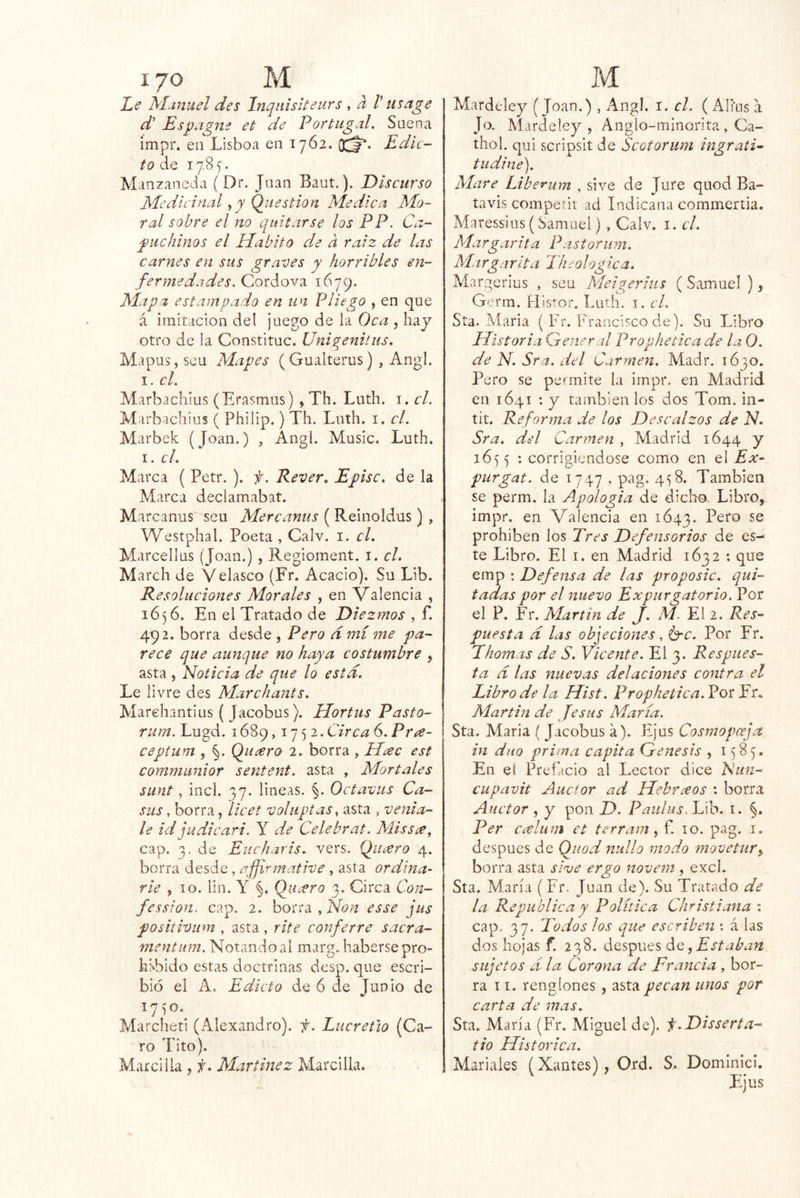 170 M
Le Manuel des Inquisiteurs , à l' usage
d' Espagne et de Portugal. Suena
impr. en Lisboa en 1762. ☞. Edic-
to de 1785.
Manzaneda ( Dr. Juan Baut. ). Discurso
Medicinal , y Question Medica Mo-
ral sobre el no quitarse los PP. Ca-
puchinos el Habito de à raiz de las
carnes en sus graves y horribles en-
fermedades. Cordova 1679.
Mapa estampado en un Pliego , en que
á imitacion del juego de la Oca , hay
otro de la Constituc. Unigenitus.
Mapus, seu Mapes ( Gualterus ) , Angl.
1. cl.
Marbachius (Erasmus) , Th. Luth. 1. cl.
Marbachius ( Philip. ) Th. Luth. 1. cl.
Marbek (Joan.) , Angl. Music. Luth.
1. cl.
Marca ( Petr. ). ỳ. Rever. Episc. de la
Marca declamabat.
Marcanus seu Mercanus ( Reinoldus ) ,
Westphal. Poeta , Calv. 1. cl.
Marcellus (Joan.) , Regioment. 1. cl.
March de Velasco (Fr. Acacio). Su Lib.
Resoluciones Morales , en Valencia ,
1656. En el Tratado de Diezmos , f.
492. borra desde , Pero á mí me pa-
rece que aunque no haya costumbre ,
asta , Noticia de que lo está.
Le livre des Marchants.
Marehantius ( Jacobus ). Hortus Pasto-
rum. Lugd. 1689, 1752. Circa 6. Præ-
ceptum , §. Quæro 2. borra , Hæc est
communior sentent. asta , Mortales
sunt , incl. 37. lineas. §. Octavus Ca-
sus , borra, licet voluptas, asta , venia-
le id judicari. Y de Celebrat. Missæ,
cap. 3. de Eucharis. vers. Quæro 4.
borra desde , affirmative , asta ordina-
rie , 10. lin. Y §. Quæro 3. Circa Con-
fession. cap. 2. borra , Non esse jus
positivum , asta , rite conferre sacra-
mentum. Notando al marg. haberse pro-
hibido estas doctrinas desp. que escri-
bió el A. Edicto de 6 de Junio de
1750.
Marcheti (Alexandro). ỳ. Lucretio (Ca-
ro Tito).
Marcilla , ỳ. Martinez Marcilla.
M
Mardeley ( Joan. ) , Angl. 1. cl. ( Alius à
Jo. Mardeley , Anglo-minorita, Ca-
thol. qui scripsit de Scotorum ingrati-
tudine).
Mare Liberum , sive de Jure quod Ba-
tavis competit ad Indicana commertia.
Maressius ( Samuel ) , Calv. 1. cl.
Margarita Pastorum.
Margarita Theologica.
Margerius , seu Meigerius ( Samuel ) ,
Germ. Histor. Luth. 1. cl.
Sta. Maria ( Fr. Francisco de). Su Libro
Historia General Prophetica de la O.
de N. Sra. del Carmen. Madr. 1630.
Pero se permite la impr. en Madrid
en 1641 : y tambien los dos Tom. in-
tit. Reforma de los Descalzos de N.
Sra. del Carmen , Madrid 1644 y
1655 : corrigiendose como en el Ex-
purgat. de 1747 , pag. 458. Tambien
se perm. la Apologia de dicho Libro,
impr. en Valencia en 1643. Pero se
prohiben los Tres Defensorios de es-
te Libro. El 1. en Madrid 1632 : que
emp : Defensa de las proposic. qui-
tadas por el nuevo Expurgatorio. Por
el P. Fr. Martin de J. M. El 2. Res-
puesta á las objeciones , &c. Por Fr.
Thomas de S. Vicente. El 3. Respues-
ta á las nuevas delaciones contra el
Libro de la Hist. Prophetica. Por Fr.
Martin de Jesus María.
Sta. Maria ( Jacobus à). Ejus Cosmopœja
in duo prima capita Genesis , 1585.
En el Prefacio al Lector dice Nun-
cupavit Auctor ad Hebræos : borra
Auctor , y pon D. Paulus. Lib. 1. §.
Per cælum et terram , f. 10. pag. 1.
despues de Quod nullo modo movetur,
borra asta sive ergo novem , excl.
Sta. María ( Fr. Juan de). Su Tratado de
la Republica y Política Christiana :
cap. 37. Todos los que escriben : á las
dos hojas f. 238. despues de , Estaban
sujetos á la Corona de Francia , bor-
ra 11. renglones , asta pecan unos por
carta de mas.
Sta. María (Fr. Miguel de). ỳ. Disserta-
tio Historica.
Mariales (Xantes) , Ord. S. Dominici.
Ejus